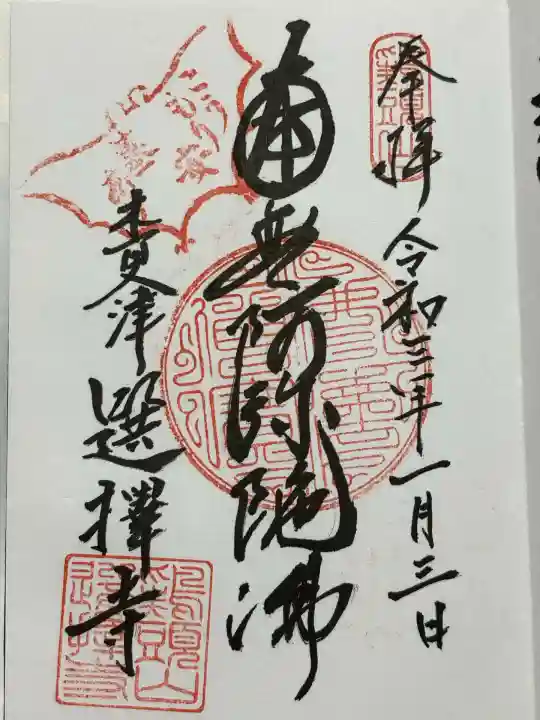 奉拝 令和三年一月三日
南無阿弥陀佛
木更津 選擇寺